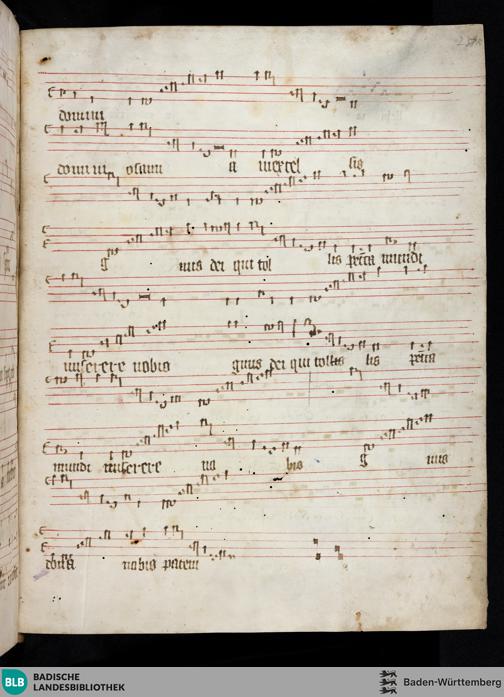 domini
domini osann a inexcel sis
g nus dei qui tol lis pcca mundi
miserere nobis gnus dei qui tollis lis pcca
mundi miserere no bis g nus
dona nobis pacem
BLB BADISCHE
LANDESBIBLIOTHEK
Baden-Württemberg